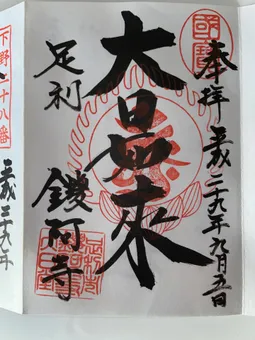 國寶
奉拝 平成二九年九月五日
大日如来
足利 鑁阿寺
下野二十八番
平成二十九年